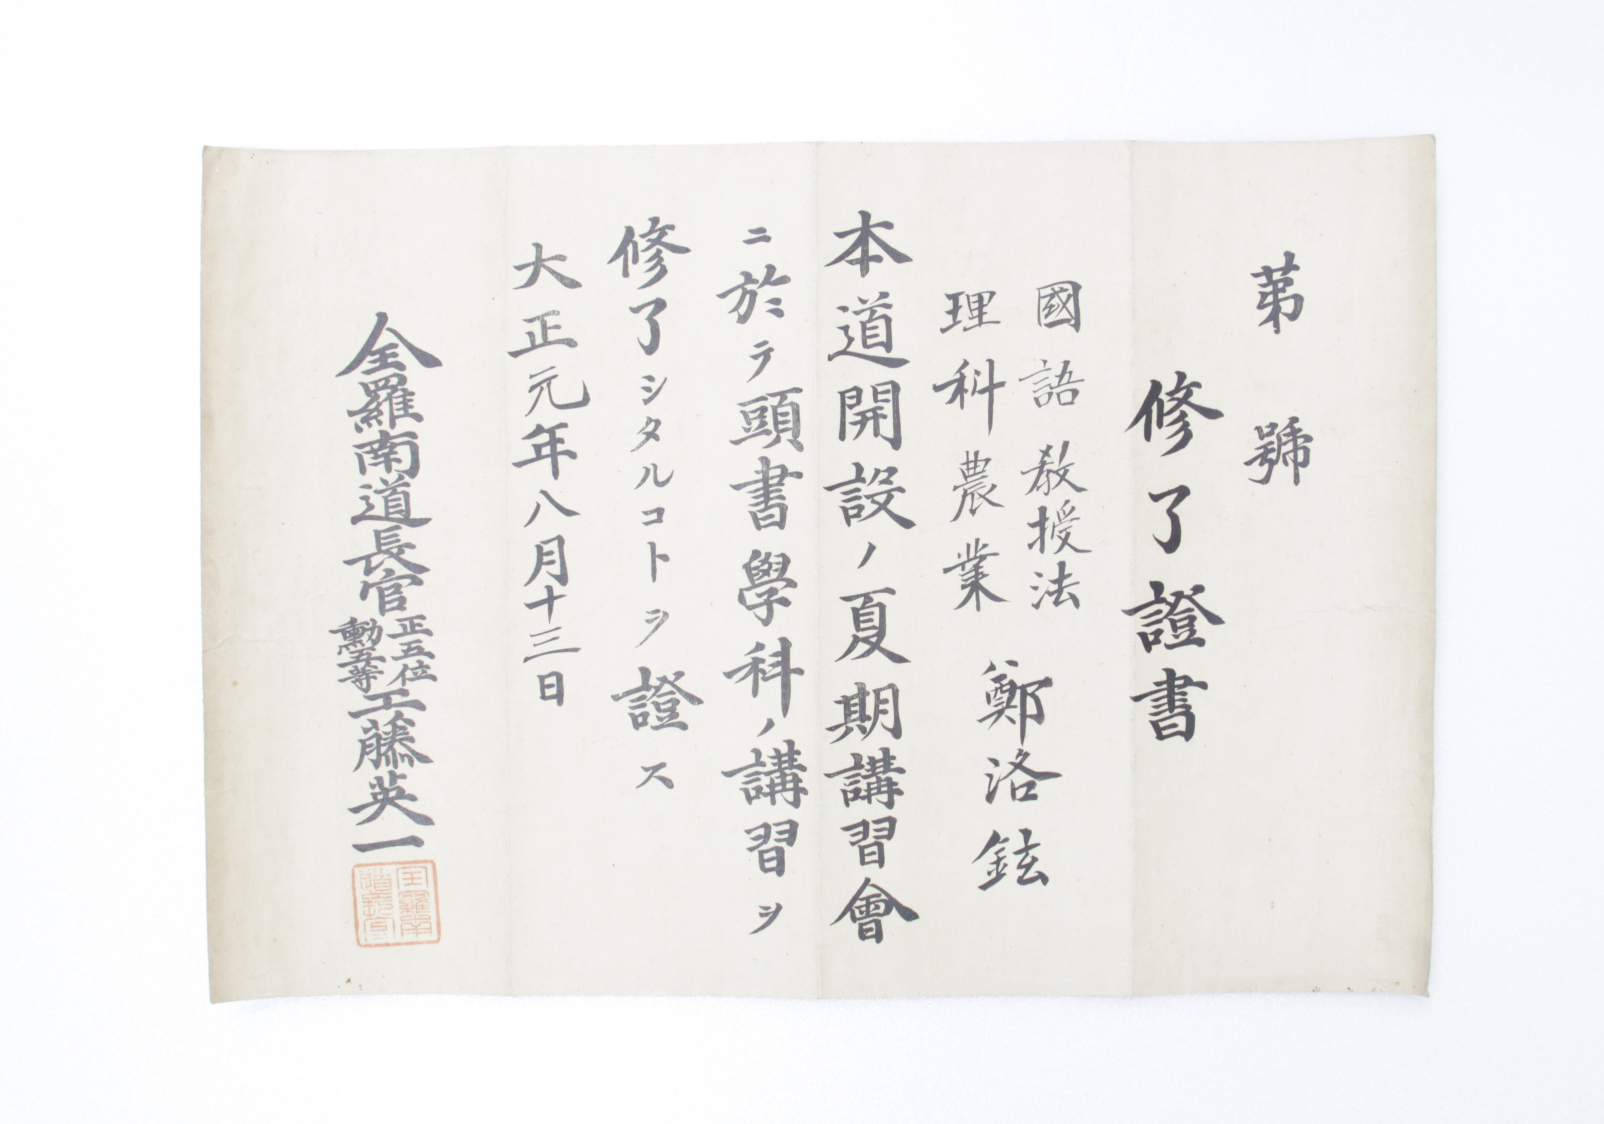 第 號
修了證書
國語教授法
理科農業
鄭洛鉉
本道開設ノ夏期講習會
ニ於テ頭書學科ノ講習ヲ
修了シタルコトヲ證ス
大正元年八月十三日
全羅南道長官正五位勳五等工藤英一
全羅南
道長官印